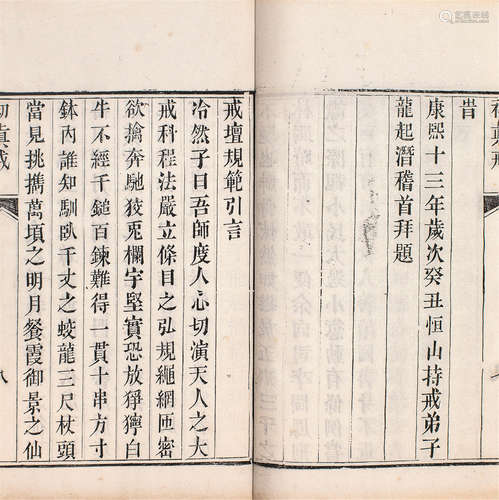 昔
康熙十三年歲次癸丑恒山持戒弟子
龍起潛稽首拜題
戒壇規範引言
冷然子曰吾師度人心切演天人之大
戒科程法嚴立條目之弘規繩網匝密
欲擒奔馳狡兎欄宇堅實恐放猙獰白
牛不經千鎚百鍊難得一貫十串方寸
鉢內誰知馴臥千丈之蛟龍三尺杖頭
當見挑擕萬頃之明月餐霞御景之仙
初真戒
八